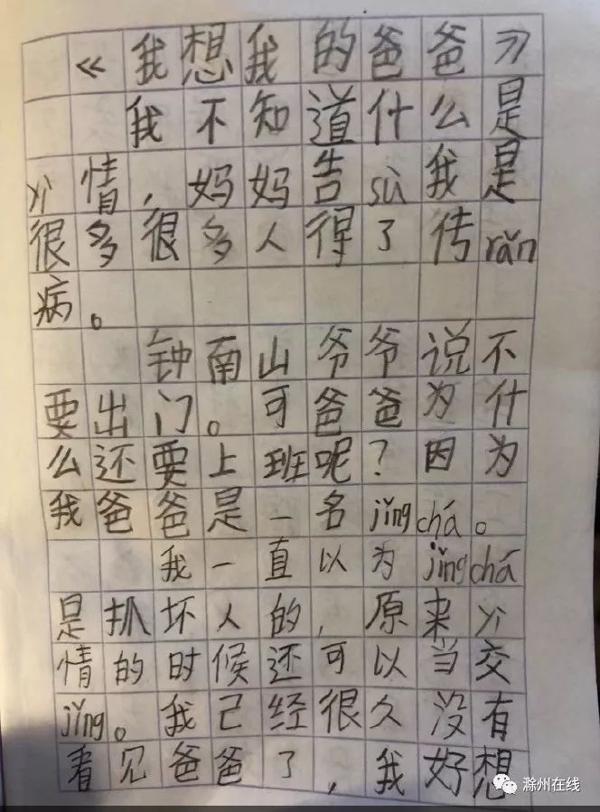 《我想我的爸爸》
我不知道什么是
yì情，妈妈告sù我是
很多很多人得了传rǎn
病。
钟南山爷爷说不
要出门。可爸爸为什
么还要上班呢？因为
我爸爸是一名jǐngchá。
我一直以为jǐngchá
是抓坏人的，原来yì
情的时候还可以当交
jǐng。我已经很久没有
看见爸爸了，我好想
滁州在线